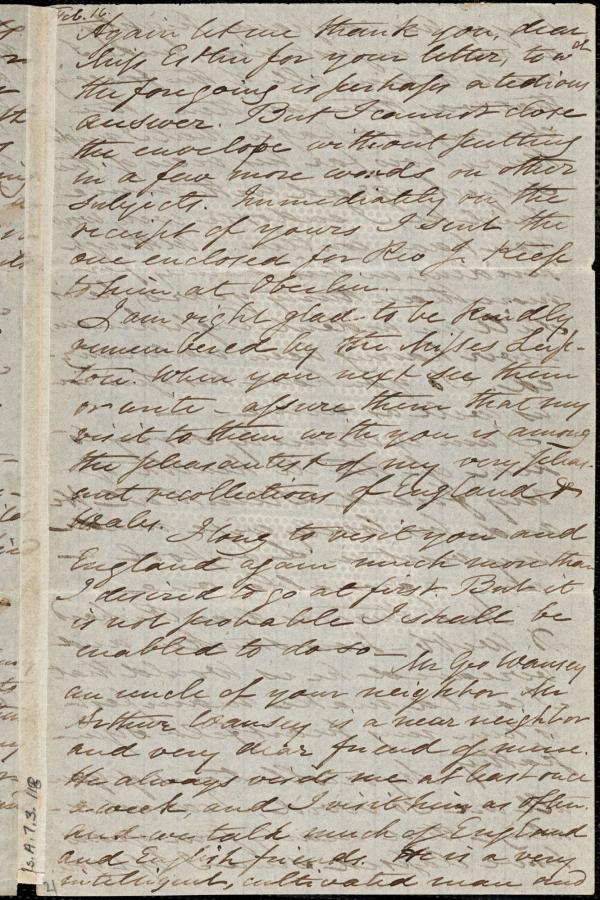 Feb. 16.
Again let me thank you, dear
Miss Estlin for your letter, to wh
the foregoing is perhaps a tedious
answer. But I cannot close
the envelope without putting
in a few more words on other
subjects. Immediately on the
receipt of yours I sent the
one enclosed for Rev J. Keep
to him at Oberlin.
I am right glad to be kindly
remembered by the Misses Lup-
ton. When you next see them
or write - assure them that my
visit to them with you is among
the pleasantest of my very pleas-
ant recollections of England &
Wales.
I long to visit you and
England again much more than
I desired to go at first. But it
is not probable I shall be
enabled to do so -
Mr Geo Wansey
an uncle of your neighbor Mr
Arthur Wansey is a near neighbor
and very dear friend of mine.
He always visits me at least once
a week, and I visit him as often.
and we talk much of England
and English friends. He is a very
intelligent, cultivated man and
s.A.7.3.118
21